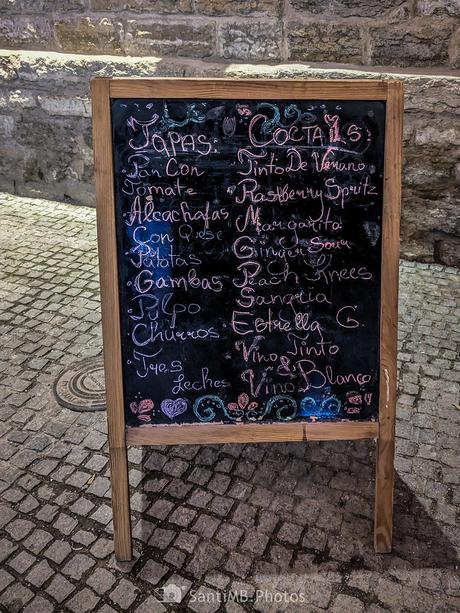 Tapas
Pan Con
Tomate
Alcachafas
Con Queso
Patatas
Gambas
Pulpo
Churros
Tres
Leches
Coctals
Tinto De Verano
Raspberry Spritz
Margarita
Ginger Sour
Peach Knees
Sangria
Estrella G.
Vino Tinto
Vino Blanco
SantiMB.Photos